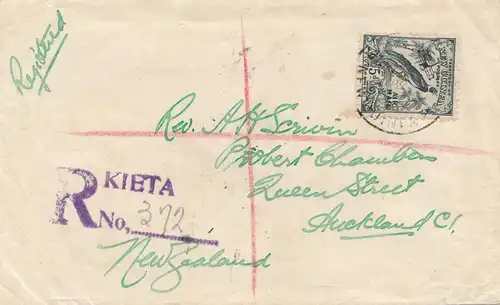 Registered
Rev. A H Scrivin
Probert Chambers
Queen Street
Auckland C1.
New Zealand
R KIETA
No, 372
NEW GUINEA
5d